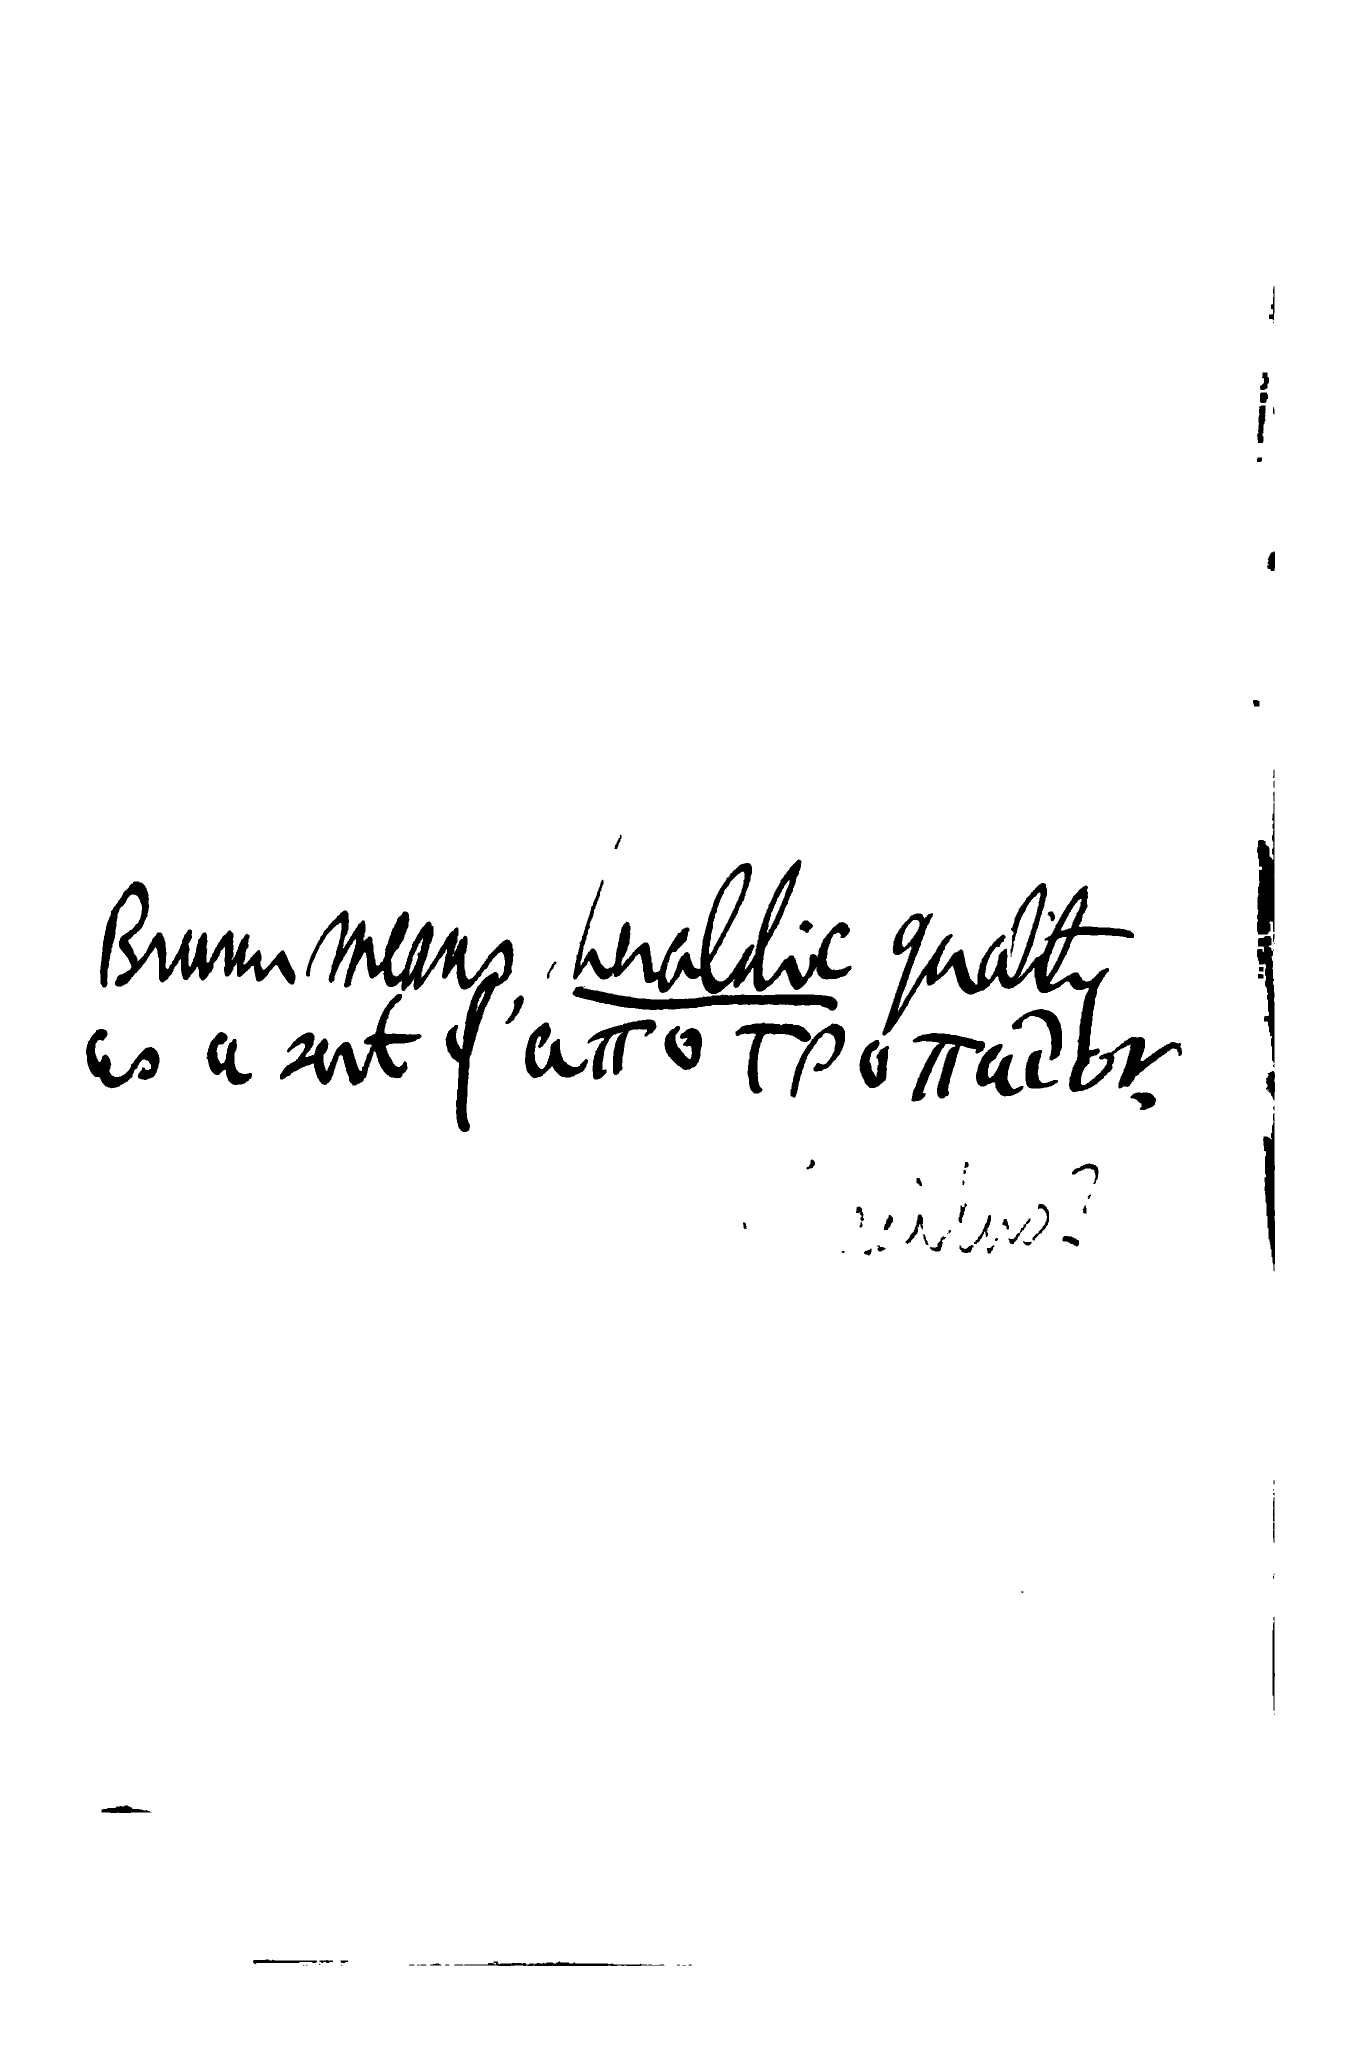 means heraldic quality
as a sort of ἀποτροπαῖον.